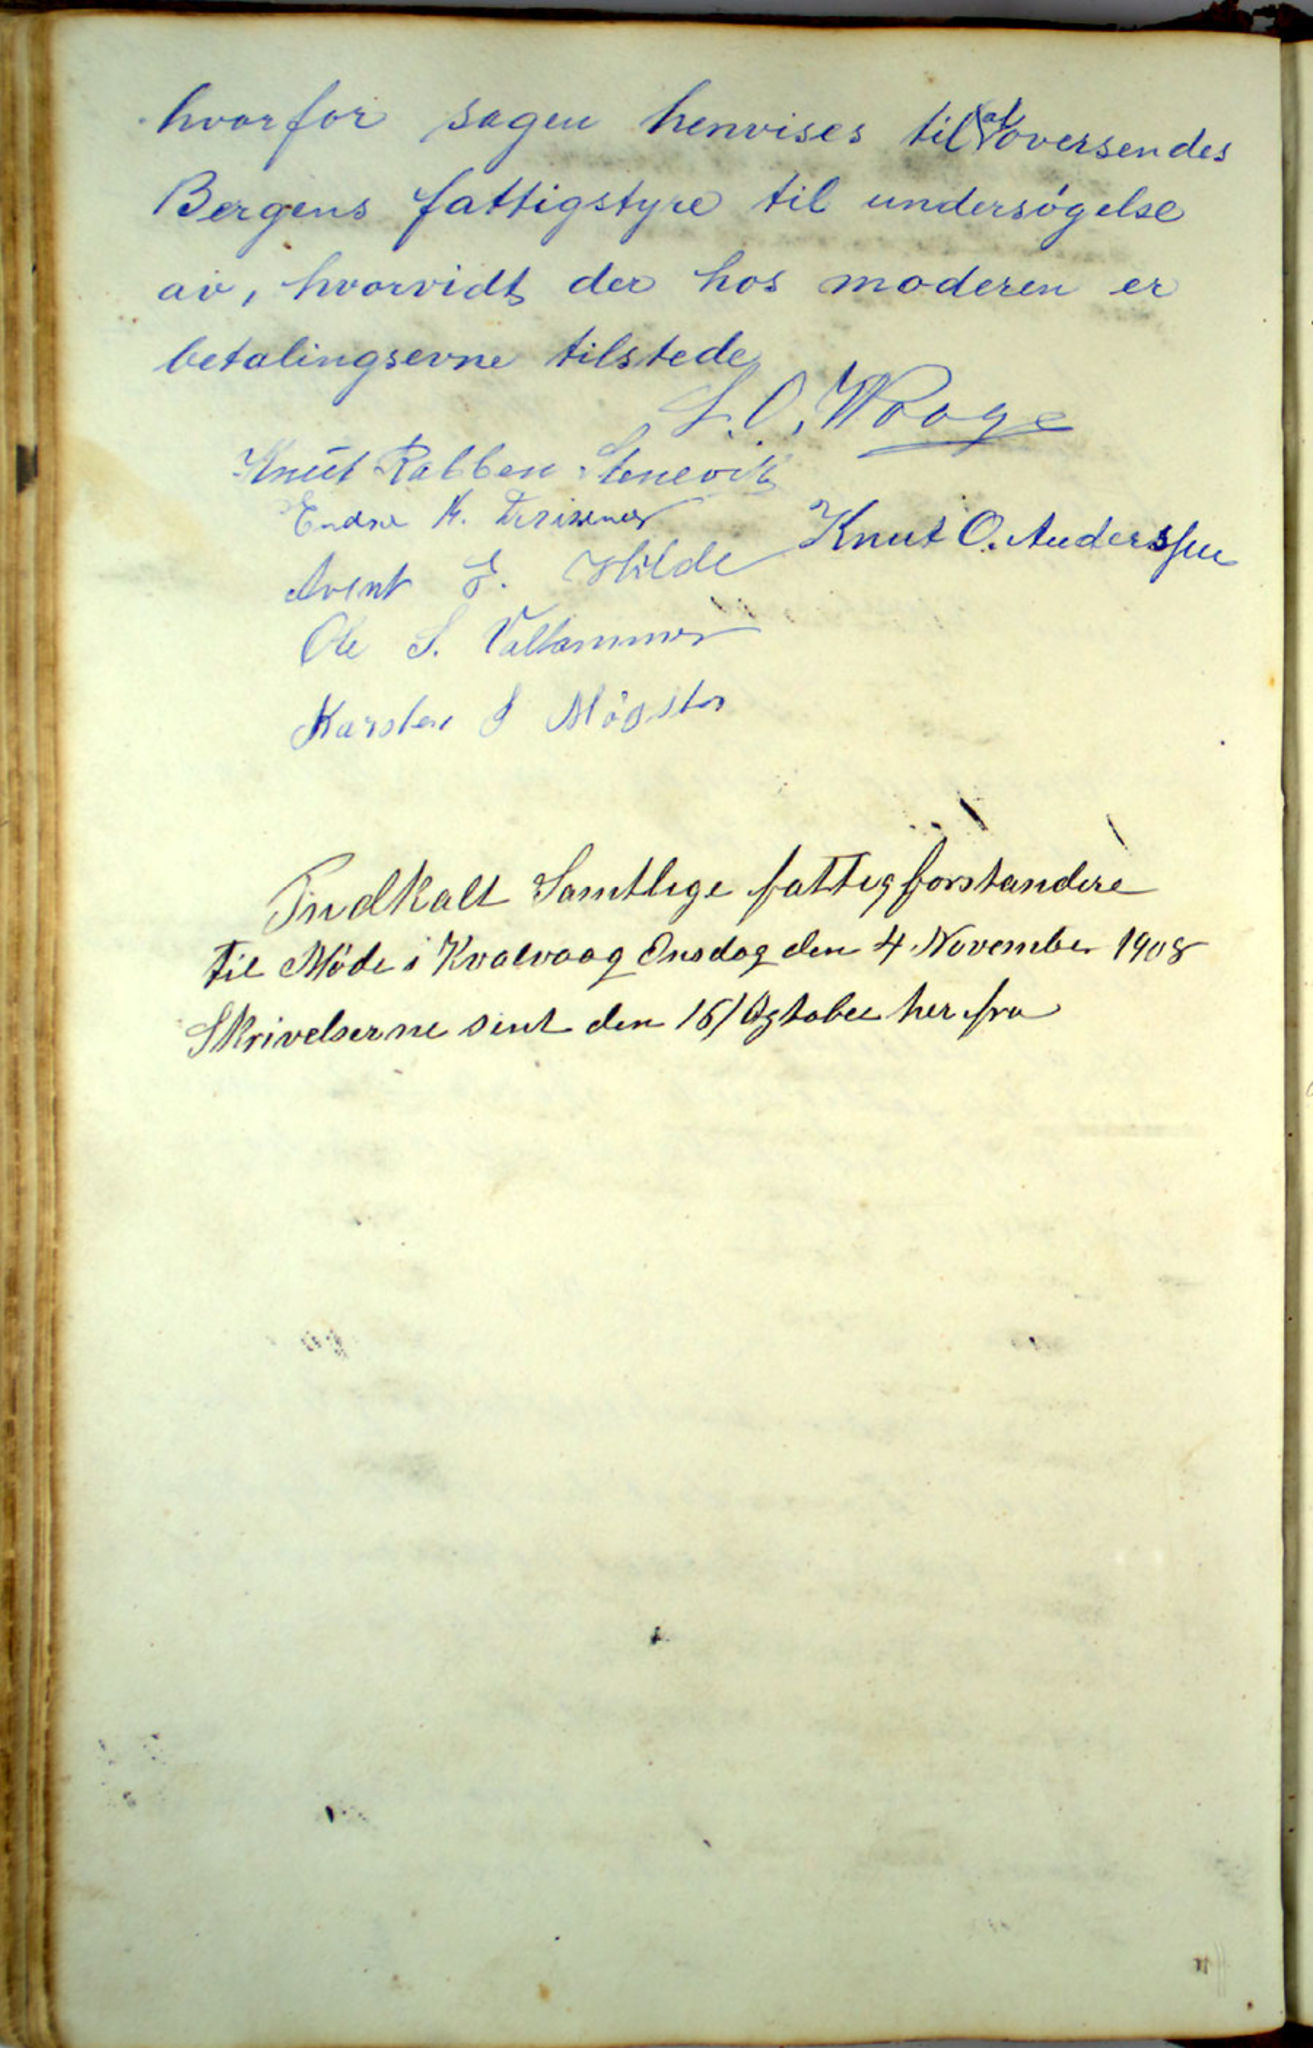 hvorfor sagen henvises til at oversendes
Bergens fattigstyre til undersøgelse
av, hvorvidt der hos moderen er
betalingsevne tilstede
L. O. Waage
Knut Rabben Stenevik
Endre K.
Knut O. Anderssen
Avent E. Hilde
Ole S. Valhammer
Karsten S Møgster
Indkalt Samtlige fattigforstandere
til Møde i Kvalvaag Onsdag den 4 November 1908
Skrivelserne sent den 16/ Ogtober her fra